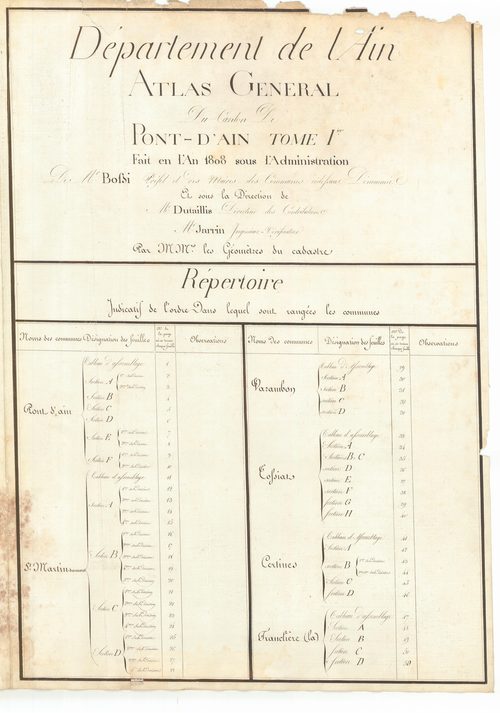 Département de l'Ain
ATLAS GENERAL
Du Canton De
PONT-D'AIN TOME Ier
Fait en l'An 1808 sous l'Administration
De Mr Bossi Préfet et des Maires des Communes
Et sous la Direction de
Mr Dutaillis Directeur des Contributions
Mr Jarrin Ingénieur Vérificateur
Par MMrs les Géomètres du cadastre
Répertoire
Indicatif de l'ordre Dans lequel sont rangées les communes
Noms des communes
Désignation des feuilles
Observations
Pont d'ain
Tableau d'assemblage 1
Section A
2
3
Section B 4
Section C 5
Section D 6
Section E
7
8
Section F
9
10
St Martin
Tableau d'assemblage 11
Section A
12
13
14
15
Section B
16
17
18
19
20
Section C
21
22
23
24
25
Section D
26
27
28
Noms des communes
Désignation des feuilles
Observations
Varambon
Tableau d'Assemblage 29
Section A 30
Section B 31
section C 32
section D
Tossiat
Tableau d'assemblage 33
Section A 34
Section B, C 35
section D 36
section E 37
section F 38
section G 39
section H 40
Certines
Tableau d'Assemblage 41
Section A 42
section B
Section C 45
section D 46
Tranclière (la)
Tableau d'assemblage 47
Section A 48
Section B 49
section C
section D 50